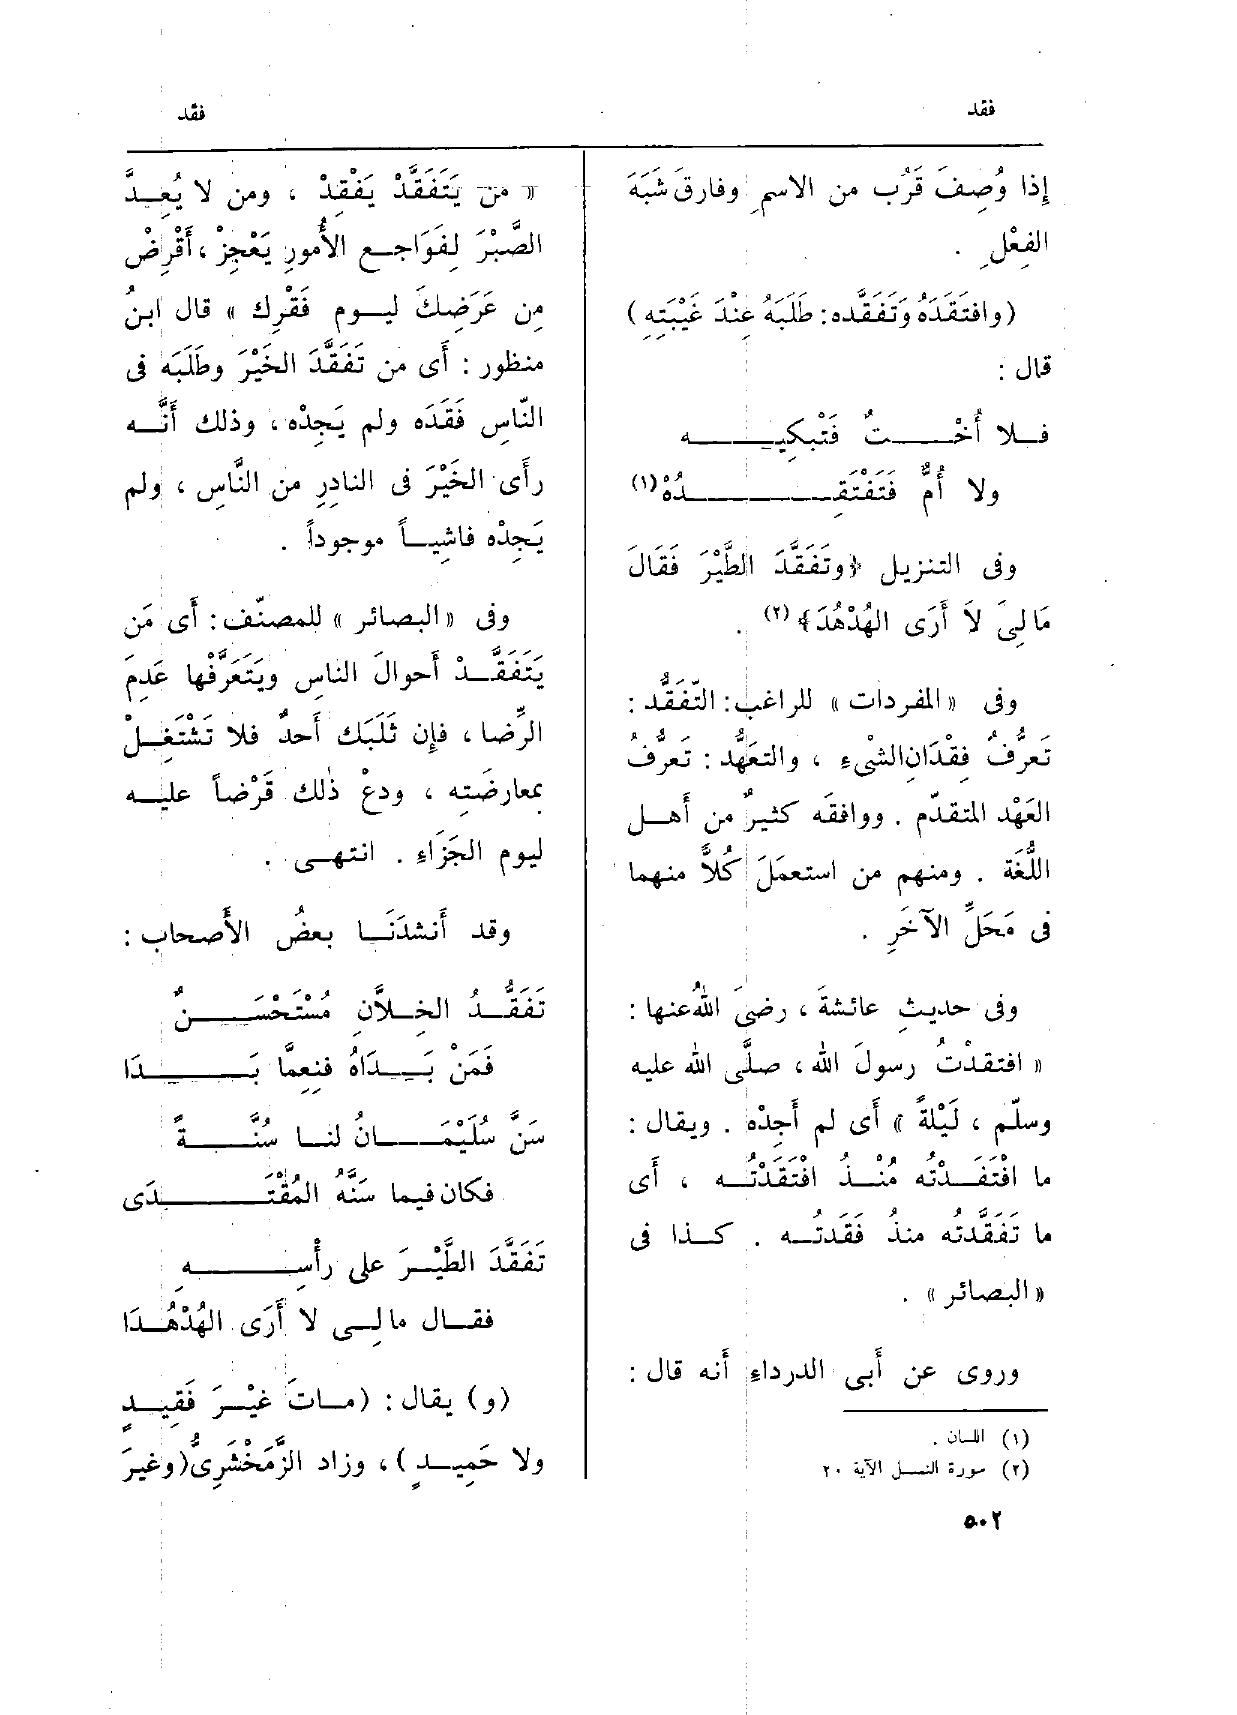 فقد
فقد
إذا وُصِفَ قَرُب من الاسمِ وفارقَ شَبَهَ
الفِعْلِ .
(وافتَقَدَهُ وَتَفَقَّده: طَلَبَهُ عِنْدَ غَيْبَتِهِ)
قال :
فـلا أُخْـــتٌ فَتَبكِيـــه
ولا أُمٌّ فَتَفْتَقِـــدُهْ (١)
وفى التنزيل ﴿وتَفَقَّدَ الطَّيْرَ فَقَالَ
مَالِىَ لاَ أَرَى الهُدْهُدَ﴾ (٢) .
وفى «المفردات» للراغب: التّفَقُّد :
تَعرُّفُ فِقْدَانِ الشىْءِ ، والتعَهُّد : تَعرُّفُ
العَهْد المتقدّم . ووافقَه كثيرٌ من أَهـل
اللُّغَة . ومنهم من استعمَلَ كُلاًّ منهما
فى مَحَلِّ الآخَرِ .
وفى حديثِ عائشةَ ، رضىَ اللهُ عنها :
« افتقدْتُ رسولَ الله ، صلَّى الله عليه
وسلّم ، لَيْلَةً » أَى لم أَجِدْه . ويقال :
ما افْتَقَـدْتُه مُنْـذُ افْتَقَدْتُـه ، أَى
ما تَفَقَّدتُه منذُ فَقَدتُـه . كـذا فى
«البصائر» .
وروى عن أَبى الدرداءِ أَنه قال :
(١) اللسان .
(٢) سورة النمـل الآية ٢٠
٥٠٢
« من يَتَفَقَّدْ يَفْقِدْ ، ومن لا يُعِـدَّ
الصَّبْرَ لِفَوَاجـعِ الأُمورِ يَعْجِزْ ، أَقْرِضْ
مِن عَرَضِكَ ليـوم فَقْرِك » قال ابنُ
منظور : أَى من تَفَقَّدَ الخَيْرَ وطَلَبَه فى
النّاسِ فَقَدَه ولم يَجِدْه ، وذلك أَنَّـه
رأَى الخَيْرَ فى النادِرِ من النَّاسِ ، ولم
يَجِدْه فاشِيـاً موجوداً .
وفى «البصائر» للمصنّف : أَى مَن
يَتَفَقَّـدْ أَحوالَ الناسِ ويَتَعَرَّفْها عَدِمَ
الرِّضا ، فإِن ثَلَبَك أَحدٌ فلا تَشْتَغِـلْ
بمعارضَتِه ، ودعْ ذٰلك قَرْضاً عليـه
ليوم الجَزَاءِ . انتهـى .
وقد أَنشدَنَـا بعضُ الأَصحابِ :
تَفَقُّـدُ الخِـلاَّنِ مُسْتَحْسَـــنٌ
فَمَنْ بَــدَاهُ فنِعِمَّا بَـــدَا
سَنَّ سُلَيْمَـــانُ لنـا سُنَّــةً
فكان فيما سَنَّهُ المُقْتَـــدَى
تَفَقَّدَ الطَّيْـرَ على رأْسِـــهِ
فقـال ما لِـى لا أَرَى الهُدْهُـدَا
(و) يقال : (مـاتَ غيْـرَ فَقِيـدٍ
ولا حَمِيـدٍ) ، وزاد الزَّمَخْشَرِىُّ (وغيرَ